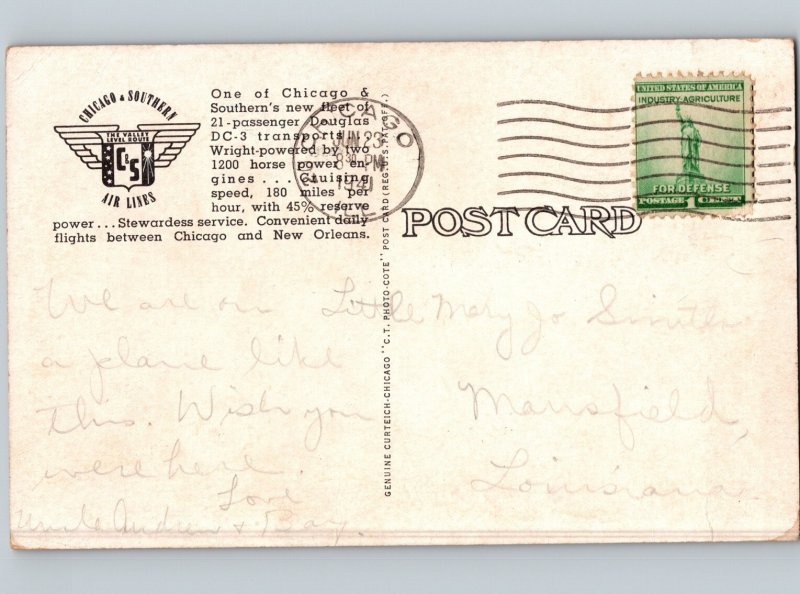 CHICAGO & SOUTHERN
THE VALLEY
LEVEL ROUTE
C&S
AIR LINES
One of Chicago &
Southern's new fleet of
21-passenger Douglas
DC-3 transports . . .
Wright-powered by two
1200 horse power en-
gines . . . Cruising
speed, 180 miles per
hour, with 45% reserve
power . . . Stewardess service. Convenient daily
flights between Chicago and New Orleans.
CHICAGO
JUN 23
8 30 PM
1941
UNITED STATES OF AMERICA
INDUSTRY·AGRICULTURE
FOR DEFENSE
POSTAGE 1 CENT
POST CARD
GENUINE CURTEICH-CHICAGO "C.T. PHOTO-COTE" POST CARD (REG. U.S. PAT. OFF.)
We are on
a plane like
this. Wish you
were here.
Love
Uncle Andrew &
Little Mary Jo Smith
Mansfield,
Louisiana